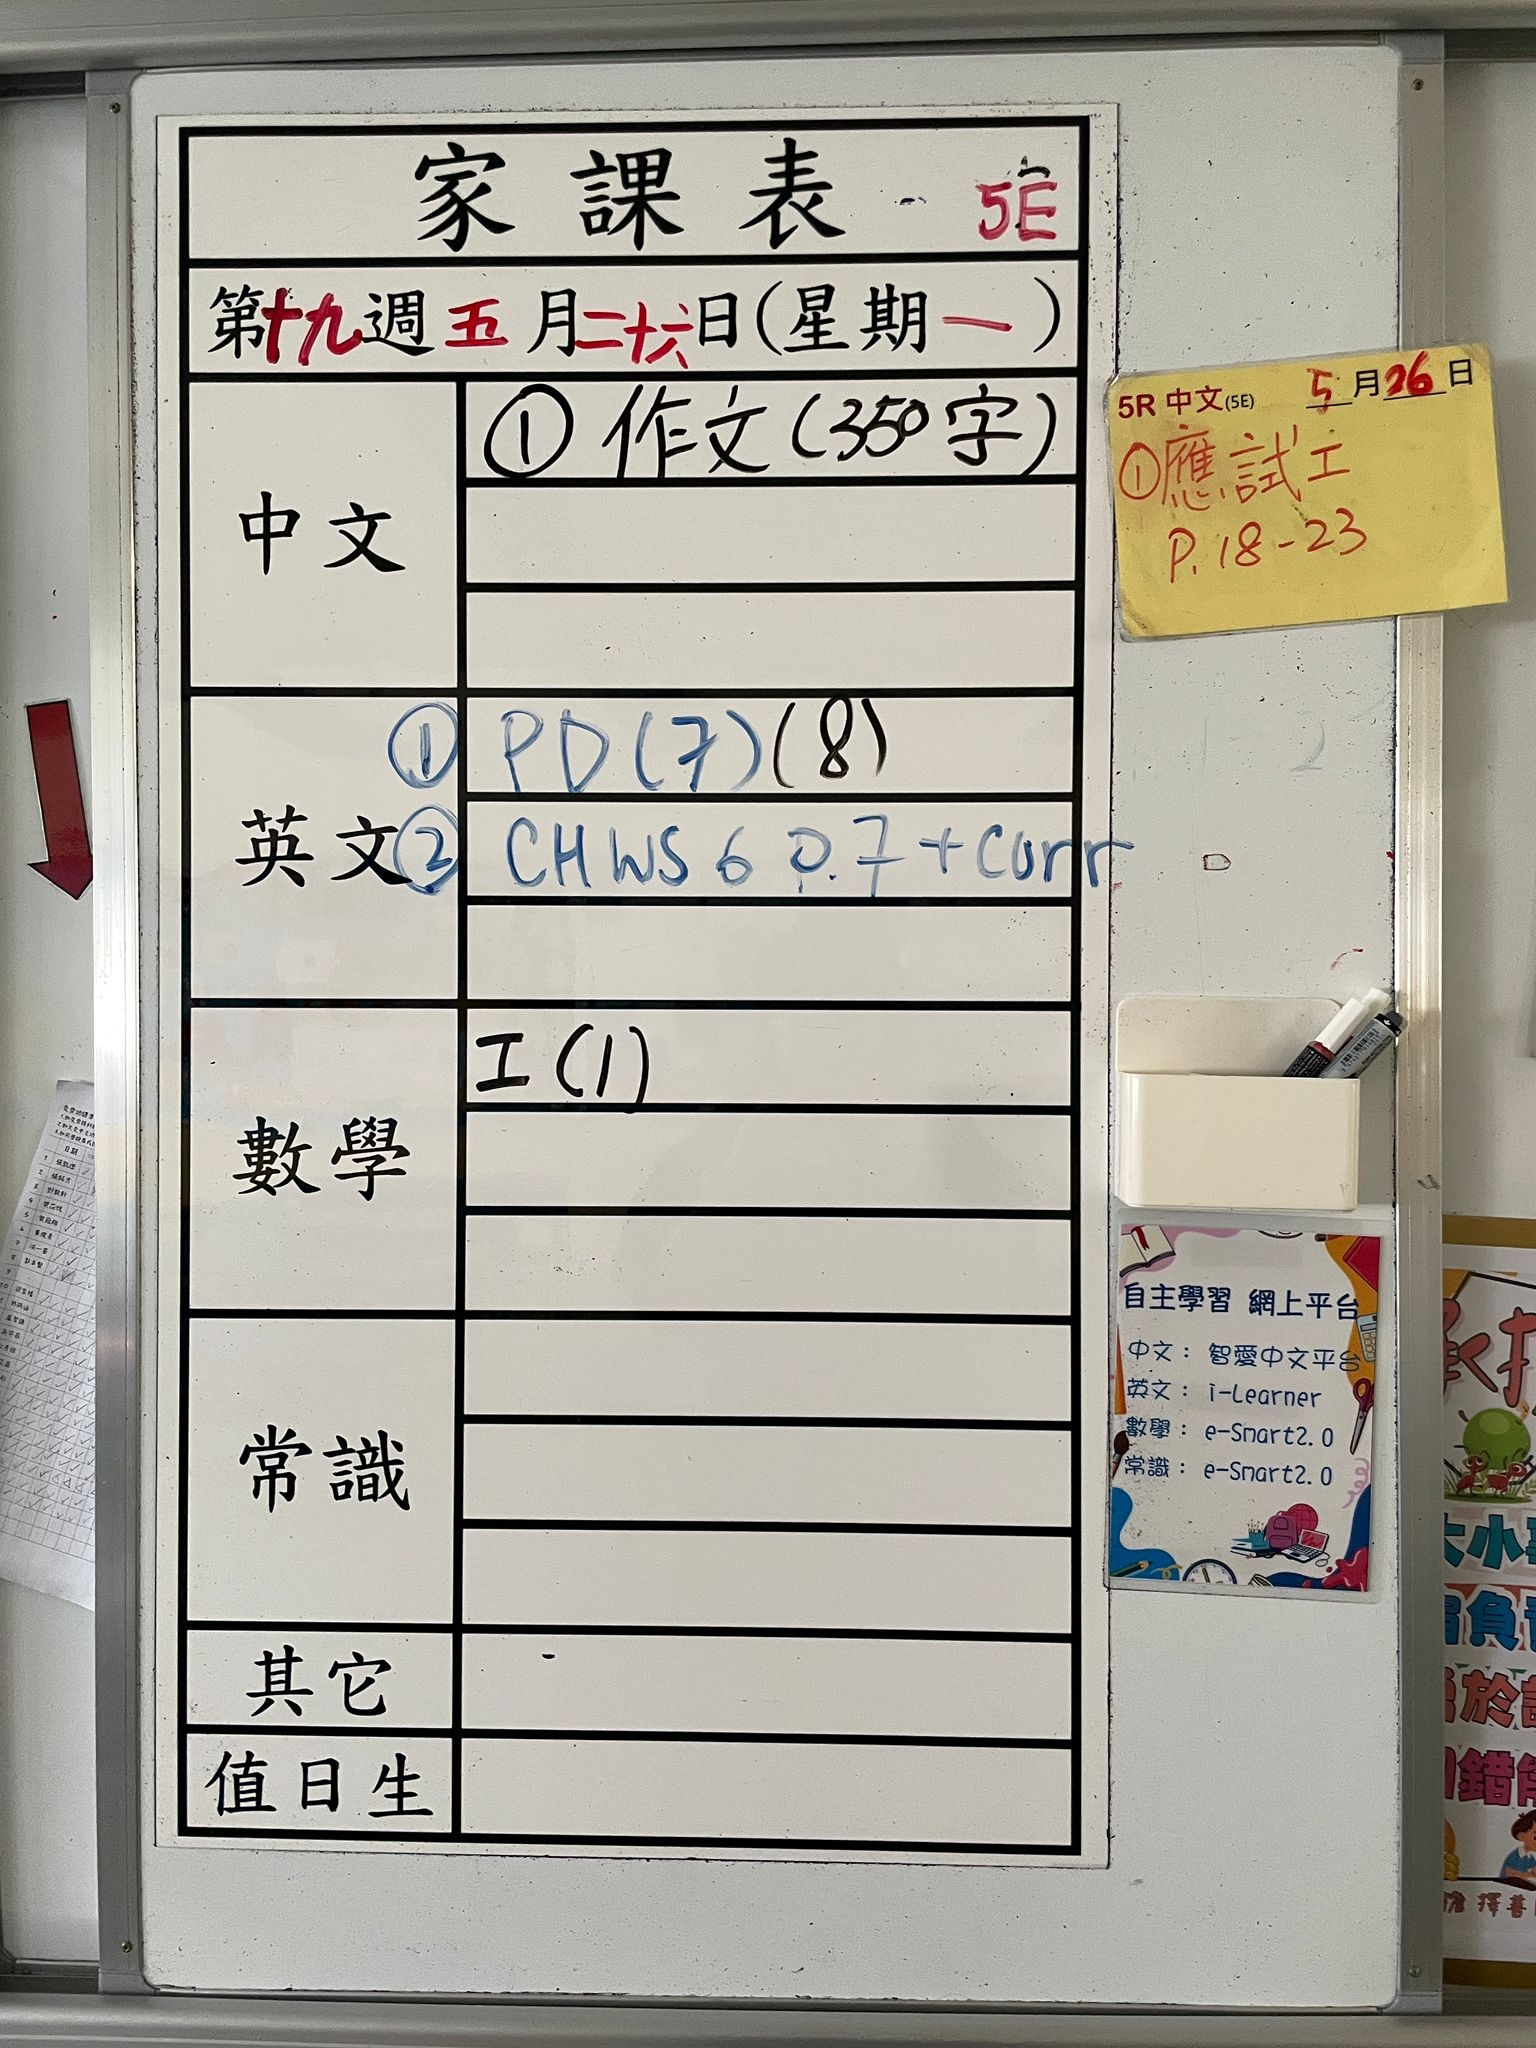 家課表 5E
第十九週五月二十六日(星期一)
中文
① 作文(350字)
英文
① PD(7)(8)
② CHWS 6 p.7 + Corr
數學
工(1)
常識
其它
值日生
5R 中文(5E) 5月26日
①應試工
P.18-23
自主學習 網上平台
中文: 智愛中文平台
英文: i-Learner
數學: e-Smart2.0
常識: e-Smart2.0
日期
大小